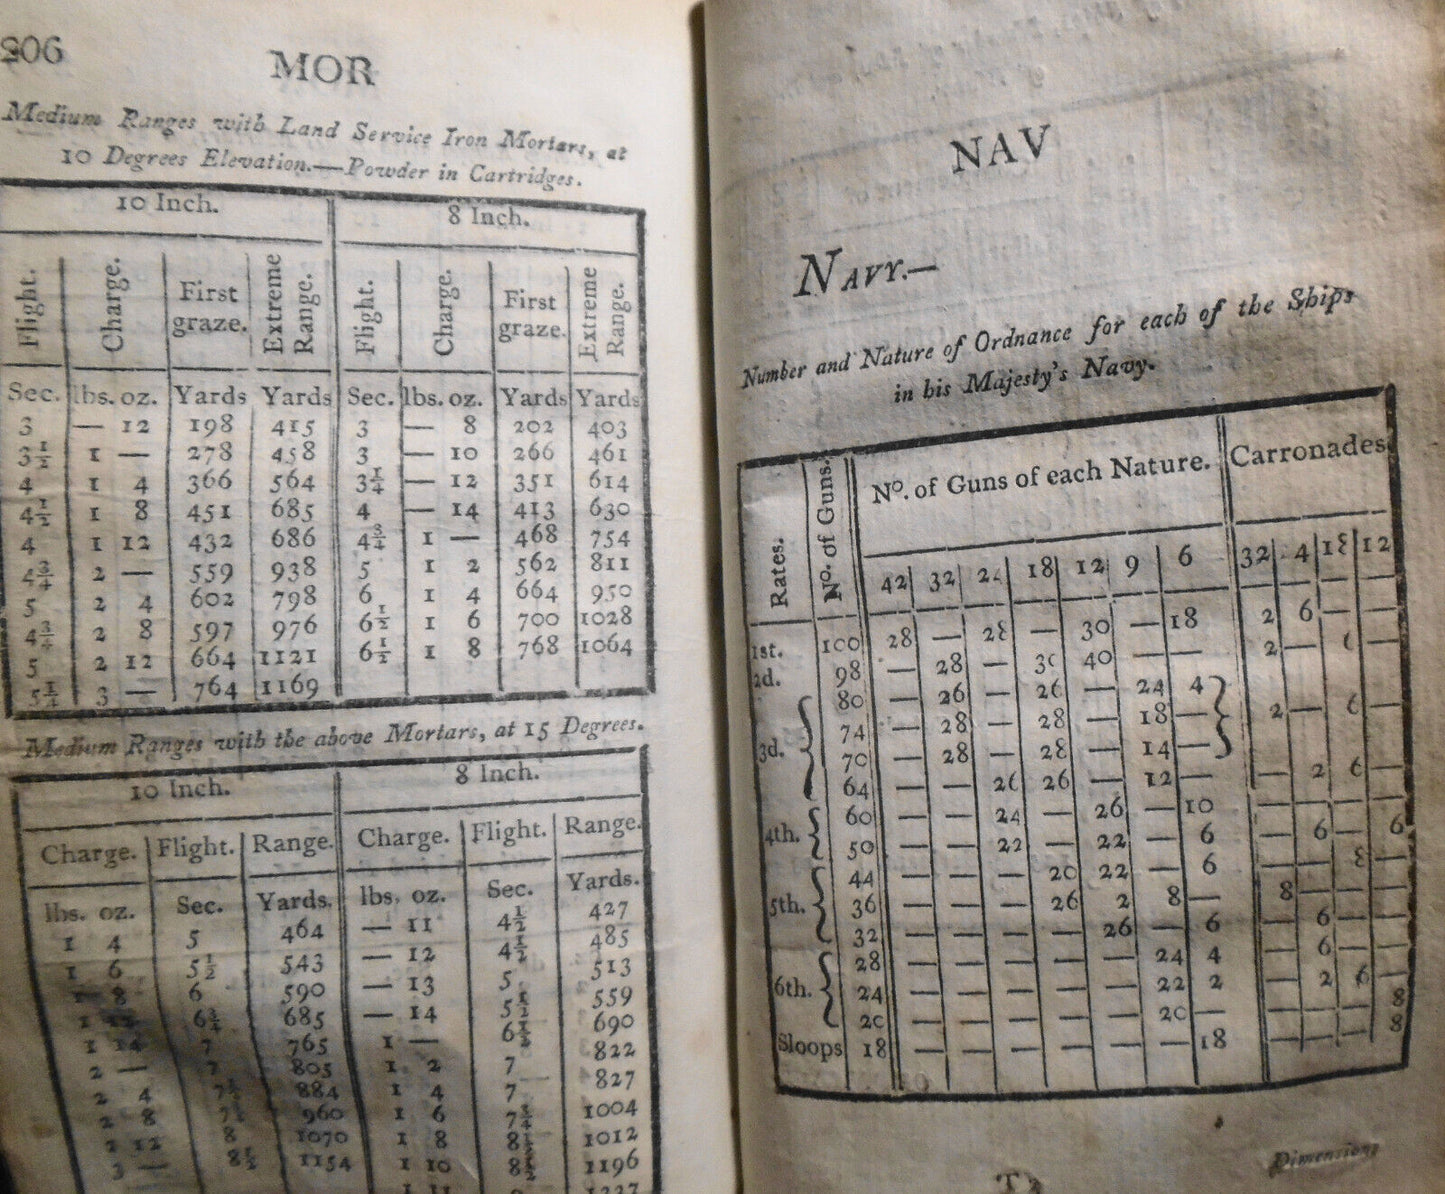 206
MOR
Medium Ranges with Land Service Iron Mortars, at
10 Degrees Elevation.—Powder in Cartridges.
10 Inch. 8 Inch.
Flight. Charge. First graze. Extreme Range. Flight. Charge. First graze. Extreme Range.
Sec. lbs. oz. Yards Yards Sec. lbs. oz. Yards Yards
3 — 12 198 415 3 — 8 202 403
3½ 1 — 278 458 3 — 10 266 461
4 1 4 366 564 3¼ — 12 351 614
4½ 1 8 451 685 4 — 14 413 630
4 1 12 432 686 4¾ 1 — 468 754
4¾ 2 — 559 938 5 1 2 562 811
5 2 4 602 798 6 1 4 664 950
4¾ 2 8 597 976 6½ 1 6 700 1028
5 2 12 664 1121 6½ 1 8 768 1064
5¼ 3 — 764 1169
Medium Ranges with the above Mortars, at 15 Degrees.
10 Inch. 8 Inch.
Charge. Flight. Range. Charge. Flight. Range.
lbs. oz. Sec. Yards. lbs. oz. Sec. Yards.
1 4 5 464 — 11 4½ 427
1 6 5½ 543 — 12 4½ 485
1 8 6 590 — 13 5 513
1 12 685 — 14 5½ 559
1 14 7 765 1 — 6½ 690
2 — 7 805 1 2 7 822
2 4 884 1 4 7 827
2 8 960 1 6 7¾ 1004
2 12 8 1070 1 8 1012
3 — 8½ 1154 1 10 8½ 1196
NAV
NAVY.—
Number and Nature of Ordnance for each of the Ships
in his Majesty's Navy.
Rates. No. of Guns. No. of Guns of each Nature. Carronades
42 32 24 18 12 9 6 32 4 18 12
1st. 100 28 — 28 — 30 — 18 2 6 — —
2d. 98 — 28 — 30 40 — — 2 — 6 —
80 — 26 — 26 — 24 4
3d. 74 — 28 — 28 — 18 — 2 — 6 —
70 — 28 — 28 — 14 —
64 — — 26 26 — 12 — — 2 6 —
4th. 60 — — 24 — 26 — 10 — — — —
50 — — 22 — 22 — 6 — 6 — 6
44 — — — 20 22 — 6 — — 8 —
5th. 36 — — — 26 2 8 — 8 — — —
32 — — — — 26 — 6 — 6 — —
28 — — — — — 24 4 — 6 — —
6th. 24 — — — — — 22 2 — 2 6 —
20 — — — — — 20 — — — — 8
Sloops 18 — — — — — — 18 — — — 8
Dimensions